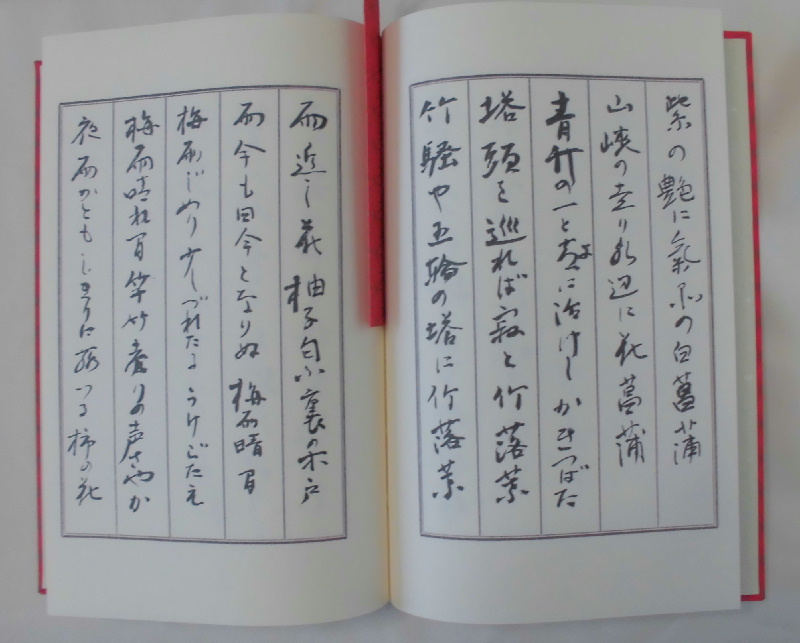 紫の艶に気品の白菖蒲
山峡の走り水辺に花菖蒲
青竹の一と節に活けしかきつばた
塔頭を巡れば寂と竹落葉
竹騒や五輪の塔に竹落葉
雨近し花柚子匂ふ裏の木戸
雨今も田今となりぬ梅雨晴間
梅雨じめり少しづれたるうけごたえ
梅雨晴れ間竿竹売りの声さやか
夜雨かともしきりに落つる柿の花